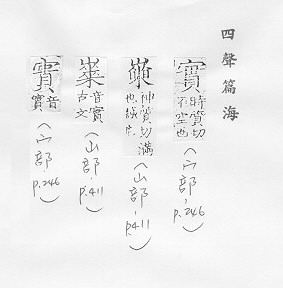 四聲篇海
實
時質切
不空也
(宀部, p.246)
神質切滿
也誠也
(山部, p.411)
音實
古文
(山部, p.411)
音
實
(宀部, p.246)